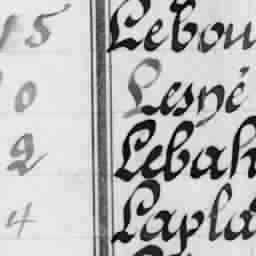 15 Lebou
0 Lesné
2 Lebah
4 Lapla